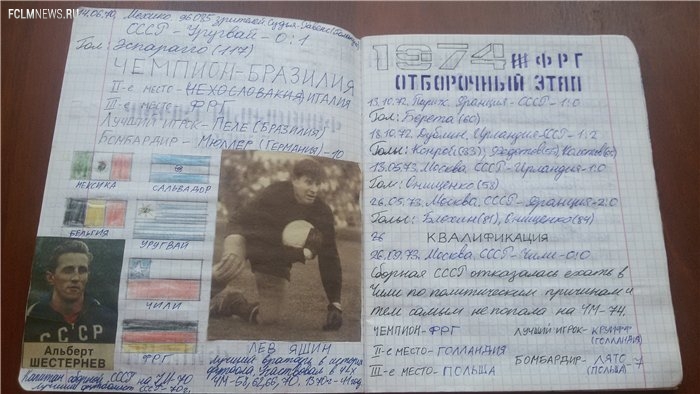 FCLMNEWS.RU
14.06.70, Мехико, 26085 зрителей Судья
СССР - Уругвай - 0:1
Гол: Эспарраго (117)
ЧЕМПИОН-БРАЗИЛИЯ
II-е место- ИТАЛИЯ
III-е место- ФРГ
Лучший игрок- ПЕЛЕ (БРАЗИЛИЯ)
Бомбардир- Мюллер (Германия)-10
МЕКСИКА
САЛЬВАДОР
БЕЛЬГИЯ
УРУГВАЙ
ЧИЛИ
ФРГ
СССР
Альберт
ШЕСТЕРНЕВ
Капитан сборной СССР на ЧМ-70
лучший футболист СССР-70г.
ЛЕВ ЯШИН
лучший вратарь в истории
футбола, участвовал в 4х
ЧМ-58, 62, 66, 70, 1970г-
1974 ФРГ
ОТБОРОЧНЫЙ ЭТАП
13.10.72, Париж, Франция - СССР - 1:0
Гол: Берета (60)
18.10.72, Дублин, Ирландия-СССР - 1:2
Голы: Конрой(83);
13.05.73, Москва, СССР - Ирландия-1:0
Гол: Онищенко (58)
26.05.73, Москва, СССР - Франция-2:0
Голы: Блохин(81), Онищенко(84)
КВАЛИФИКАЦИЯ
26.09.73, Москва, СССР - Чили - 0:0
Сборная СССР отказалась ехать в
Чили по политическим причинам и
тем самым не попала на ЧМ-74.
ЧЕМПИОН-ФРГ
ЛУЧШИЙ ИГРОК- КРУИФФ
(ГОЛЛАНДИЯ)
II-е МЕСТО- ГОЛЛАНДИЯ
БОМБАРДИР- ЛЯТО -7
(ПОЛЬША)
III-е МЕСТО- ПОЛЬША